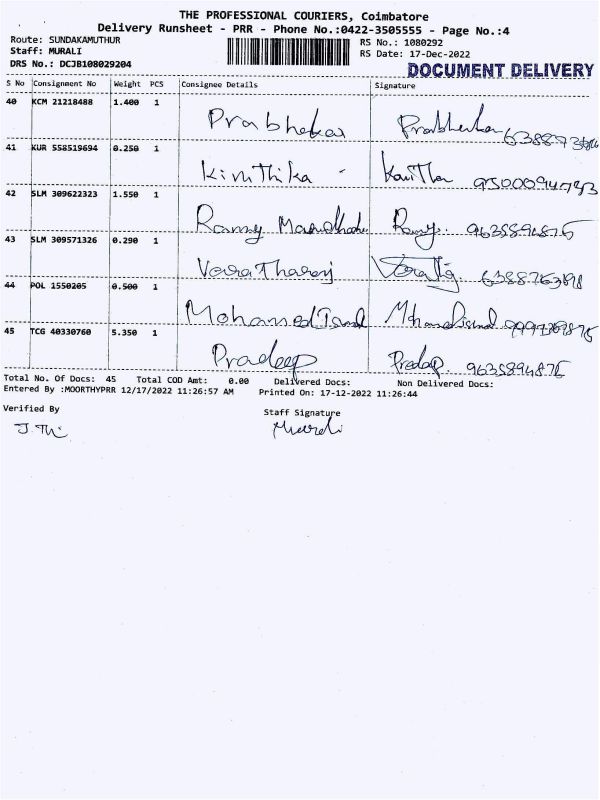 THE PROFESSIONAL COURIERS, Coimbatore
Delivery Runsheet - PRR - Phone No.:0422-3505555 - Page No.:4
Route: SUNDAKAMUTHUR RS No.: 1080292
Staff: MURALI RS Date: 17-Dec-2022
DRS No.: DCJB108029204 DOCUMENT DELIVERY
S No Consignment No Weight PCS Consignee Details Signature
40 KCM 21218488 1.400 1
Prabhakar Prabhakar
41 KUR 558519694 0.250 1
Kiruthika - Kavitha
42 SLM 309622323 1.550 1
Ramy Ramy 9635894876
43 SLM 309571326 0.290 1
Varatharaj
44 POL 1550205 0.500 1
Mohamed
45 TCG 40330760 5.350 1
Pradeep Pradeep. 9635894876
Total No. Of Docs: 45 Total COD Amt: 0.00 Delivered Docs: Non Delivered Docs:
Entered By :MOORTHYPRR 12/17/2022 11:26:57 AM Printed On: 17-12-2022 11:26:44
Verified By Staff Signature
Murali